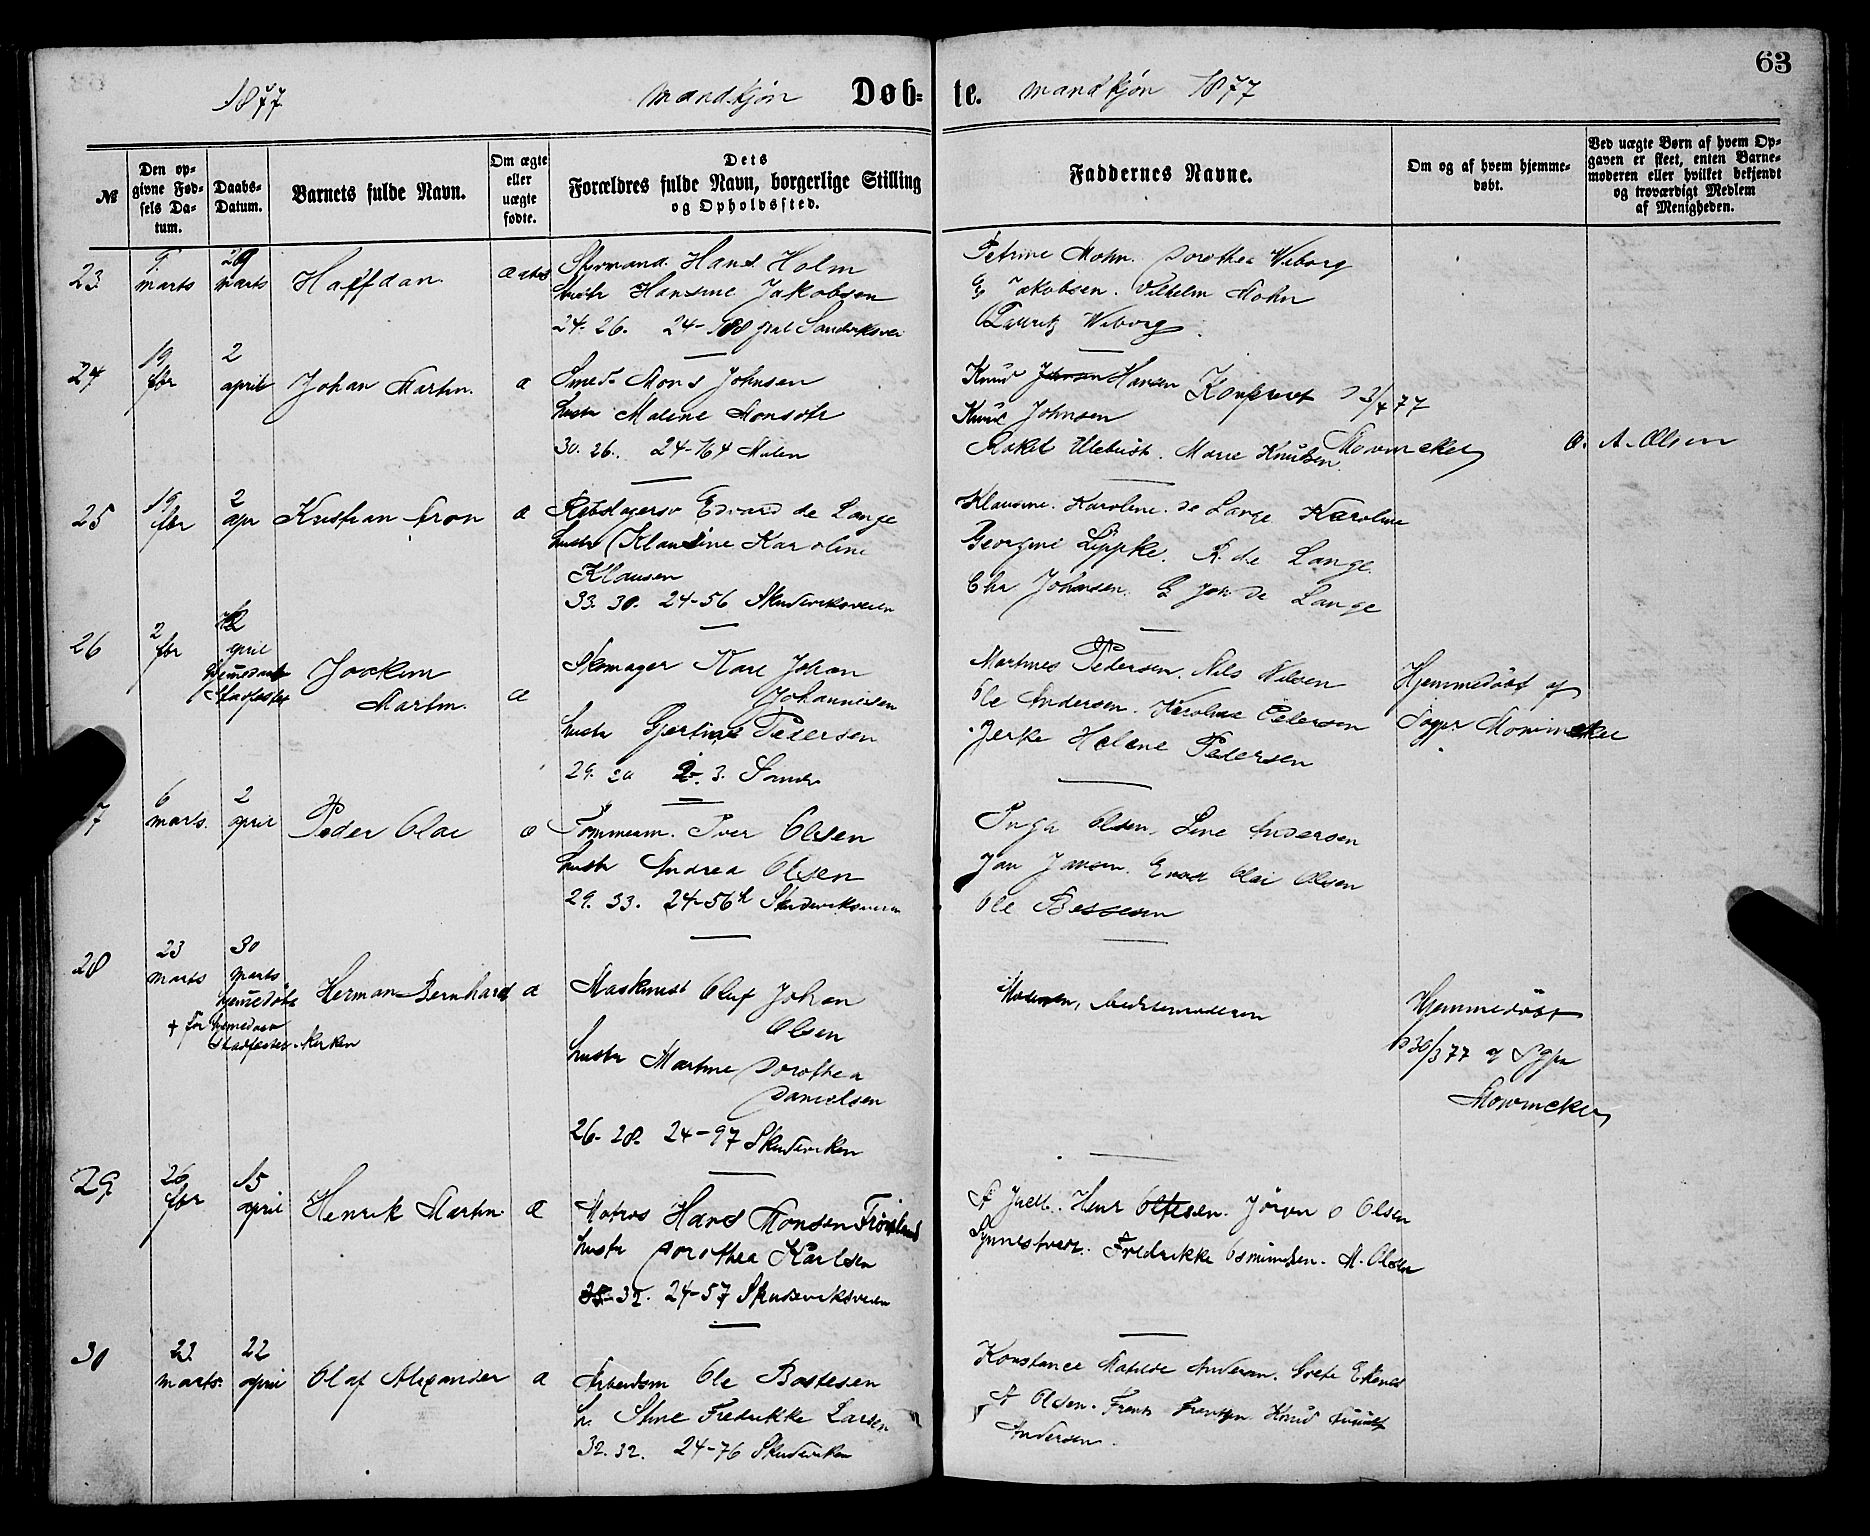 63
1877 Mandkjøn Døb-te. Mandkjøn 1877
№
Den op-
givne Fød-
sels Da-
tum.
Daabs-
Datum.
Barnets fulde Navn.
Om ægte
eller
uægte
fødte.
Dets
Forældres fulde Navn, borgerlige Stilling
og Opholdssted.
Faddernes Navne.
Om og af hvem hjemme-
døbt.
Ved uægte Børn af hvem Op-
gaven er skeet, enten Barne-
moderen eller hvilket bekjendt
og troværdigt Medlem
af Menigheden.
23
9
marts
29
marts
Halfdan
Styrmand Hans Holm
hustr Hansine Jakobsen
24. 26.
Petrine Mohn. Dorothea Wiborg
Jakobsen. Vilhelm Mohn
Lauritz Wiborg
24
19
fbr
2
april
Johan Martin
æ
Smed Mons Johnsen
hustr Malene Monsdtr
30. 26. 24-164 Mulen
Knud Hansen Konfereret 3/4 77
Knud Johnsen
Rakel Ulebust. Marie Knudsen Mowinckel
O. A. Olsen
25
19
fbr
2
apr
Kristian Aron
æ
Rebslagersv Edvard de Lange
hustr Klausine Karoline
Klausen
33. 30. 24-56 Skudeviksveien
Klausine Karoline de Lange Karoline
Georgine Lippke. R. de Lange
Chr Johnsen. G Joh de Lange
26
2
fbr
april
Joakim
Martin
æ
Skomager Karl Johan
Johannesen
hustr Gjertine Pedersen
29. 20 2. 3.
Martines Pedersen. Nils Nilsen
Ole Andersen. Karoline Petersen
Jerke Helene Pedersen
Hjemmedøbt af
Sogpr Mowinckel
27
6
marts.
2
april
Peder Olai
æ
Tømmerm. Iver Olsen
hustr Andrea Olsen
29. 33. 24-56 Skudeviksveien
Inga Olsen. Line Andersen
Jan Jansen. Olai Olsen
Ole Bessesen
28
23
marts
30
marts
hjemedøbt
Herman Bernhard
æ
Maskinist Oluf Johan
Olsen
hustr Martine Dorothea
Danielsen
26-28. 24-97 Skudeviken
Moderen,
Hjemmedøbt
30/3 77 af Sgpr
Mowinckel
29
26
fbr
15
april
Henrik Martin
æ
Matros Hans Monsen Frøisland
hustr Dorothea Karlsen
32. 24-57 Skudeviksveien
Juell. Henr Olsen. Jørgen O Olsen
Fredrikke Osmundsen. M. Olsen
30
23
marts.
22
april
Olaf Alexander
æ
Arbeidsm Ole Bastesen
h. Stine Fredrikke Larsen
32. 32. 24-76 Skudeviken
Konstance Matilde Andersen. Grete
A Olsen. Frents Frentzen Knud
Andersen.